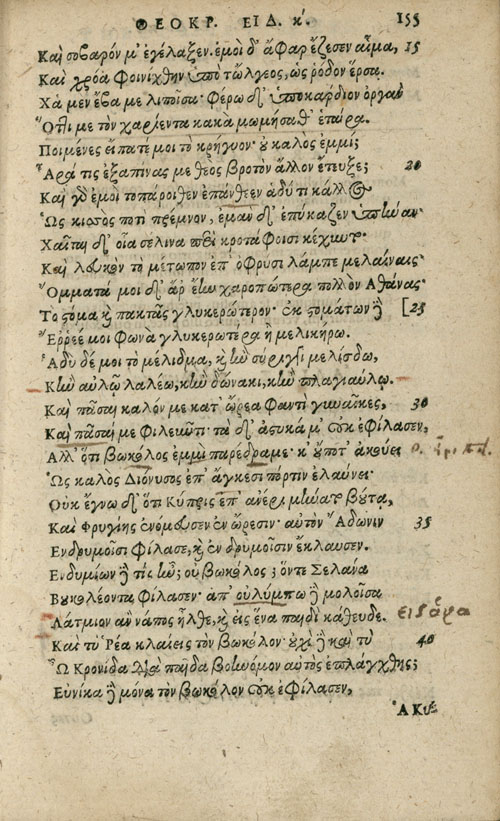 ΘΕΟΚΡ. ΕΙΔ. κ΄. 155
Καὶ σοβαρόν μ' ἐγέλαξεν. ἐμοὶ δ' ἄφαρ ἔζεσεν αἷμα, 15
Καὶ χρόα φοινίχθην ὑπὸ τὤλγεος, ὡς ῥόδον ἕρσα.
Χἁ μὲν ἔβα με λιποῖσα· φέρω δ' ὑποκάρδιον ὀργὰν
Ὅτι με τὸν χαρίεντα κακὰ μωμήσαθ' ἑταίρα.
Ποιμένες εἴπατέ μοι τὸ κρήγυον· ὐ καλὸς ἐμμί;
Ἆρά τις ἐξαπίνας με θεὸς βροτὸν ἄλλον ἔτευξε; 20
Καὶ γὸ ἐμοὶ τοπάροιθεν ἐπάνθεεν ἁδύ τι κάλλος
Ὡς κισσὸς ποτὶ πρέμνον, ἐμὰν δ' ἐπύκαζεν ὑπήναν·
Χαῖται δ' οἷα σέλινα περὶ κροτάφοισι κέχυντο·
Καὶ λευκὸν τὸ μέτωπον ἐπ' ὀφρύσι λάμπε μελαίναις·
Ὄμματά μοι δ' ἄρ' ἔην χαροπώτερα πολλὸν Ἀθάνας·
Τὸ στόμα καὶ πακτᾶς γλυκερώτερον· ἐκ στομάτων δὲ [25
Ἔρρεέ μοι φωνὰ γλυκερωτέρα ἢ μελικήρω.
Ἁδὺ δέ μοι τὸ μέλισμα, κἢν σύριγγι μελίσδω,
Κἢν αὐλῷ λαλέω, κἢν δώνακι, κἢν πλαγιαύλῳ.
Καὶ πᾶσαι καλόν με κατ' ὤρεα φαντὶ γυναῖκες, 30
Καὶ πᾶσαί με φιλεῦντι· τὰ δ' ἀστυκά μ' οὐκ ἐφίλασεν,
Ἀλλ' ὅτι βωκόλος ἐμμὶ παρέδραμε· κ' ὔποτ' ἀκούει
Ὡς καλὸς Διόνυσος ἐπ' ἄγκεσι πόρτιν ἐλαύνει·
Οὐκ ἔγνω δ' ὅτι Κύπρις ἐπ' ἀνέρι μήνατο βύτᾳ,
Καὶ Φρυγίης ἐνόμευσεν ἐν ὤρεσιν· αὐτὸν Ἄδωνιν 35
Ἐν δρυμοῖσι φίλασε, καὶ ἐν δρυμοῖσιν ἔκλαυσεν.
Ἐνδυμίων δὲ τίς ἦν; οὐ βωκόλος; ὅν τε Σελάνα
Βυκολέοντα φίλασεν· ἀπ' οὐλύμπω δὲ μολοῖσα
Λάτμιον ἂν νάπος ἦλθε, καὶ εἰς ἕνα παιδὶ κάθευδε. εἰς ἅρα
Καὶ τὺ Ῥέα κλαίεις τὸν βωκόλον· ὐχὶ δὲ καὶ τὺ 40
Ὦ Κρονίδα διὰ παῖδα βοηνόμον αὐτὸς ἐπλάγχθης;
Εὐνίκα δὲ μόνα τὸν βωκόλον οὐκ ἐφίλασεν,
Ἁ Κυ-